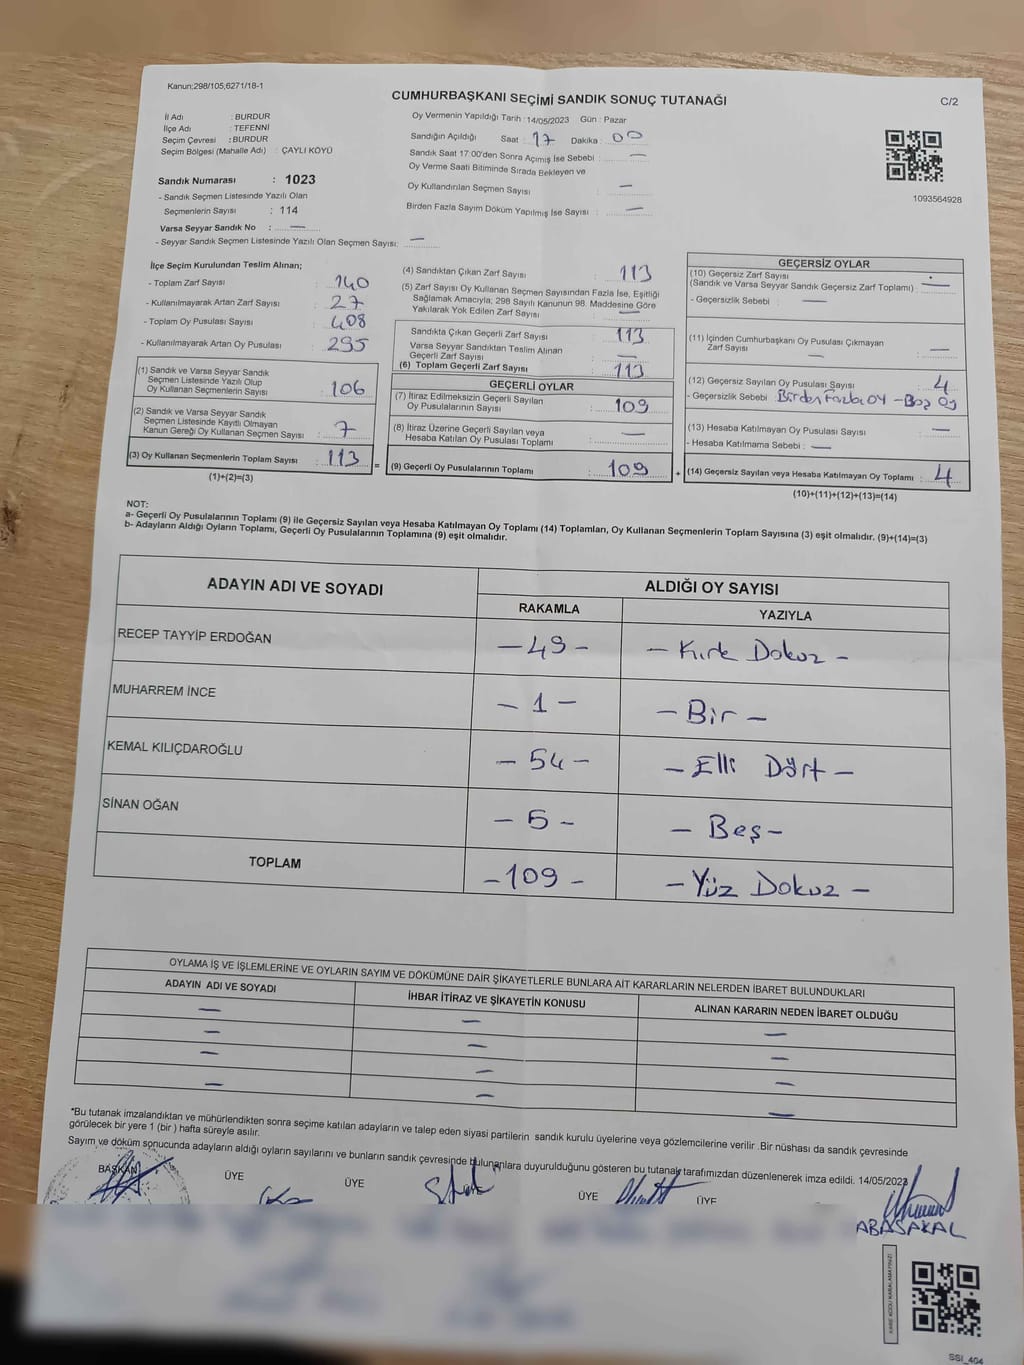 Kanun;298/105,6271/18-1
CUMHURBAŞKANI SEÇİMİ SANDIK SONUÇ TUTANAĞI
C/2
İl Adı : BURDUR
İlçe Adı : TEFENNİ
Seçim Çevresi : BURDUR
Seçim Bölgesi (Mahalle Adı) : ÇAYLI KÖYÜ
Sandık Numarası : 1023
- Sandık Seçmen Listesinde Yazılı Olan
Seçmenlerin Sayısı : 114
Varsa Seyyar Sandık No : —
- Seyyar Sandık Seçmen Listesinde Yazılı Olan Seçmen Sayısı: —
Oy Vermenin Yapıldığı Tarih : 14/05/2023 Gün : Pazar
Sandığın Açıldığı Saat : 17 Dakika : 00
Sandık Saat 17:00'den Sonra Açımış İse Sebebi : —
Oy Verme Saati Bitiminde Sırada Bekleyen ve
Oy Kullandırılan Seçmen Sayısı : —
Birden Fazla Sayım Döküm Yapılmış İse Sayısı : —
1093564928
İlçe Seçim Kurulundan Teslim Alınan;
- Toplam Zarf Sayısı : 140
- Kullanılmayarak Artan Zarf Sayısı : 27
- Toplam Oy Pusulası Sayısı : 408
- Kullanılmayarak Artan Oy Pusulası : 295
(1) Sandık ve Varsa Seyyar Sandık
Seçmen Listesinde Yazılı Olup
Oy Kullanan Seçmenlerin Sayısı : 106
(2) Sandık ve Varsa Seyyar Sandık
Seçmen Listesinde Kayıtlı Olmayan
Kanun Gereği Oy Kullanan Seçmen Sayısı : 7
(3) Oy Kullanan Seçmenlerin Toplam Sayısı : 113
(1)+(2)=(3)
(4) Sandıktan Çıkan Zarf Sayısı : 113
(5) Zarf Sayısı Oy Kullanan Seçmen Sayısından Fazla İse, Eşitliği
Sağlamak Amacıyla; 298 Sayılı Kanunun 98. Maddesine Göre
Yakılarak Yok Edilen Zarf Sayısı : —
Sandıkta Çıkan Geçerli Zarf Sayısı : 113
Varsa Seyyar Sandıktan Teslim Alınan
Geçerli Zarf Sayısı : —
(6) Toplam Geçerli Zarf Sayısı : 113
GEÇERLİ OYLAR
(7) İtiraz Edilmeksizin Geçerli Sayılan
Oy Pusulalarının Sayısı : 109
(8) İtiraz Üzerine Geçerli Sayılan veya
Hesaba Katılan Oy Pusulası Toplamı : —
(9) Geçerli Oy Pusulalarının Toplamı : 109
=
+
GEÇERSİZ OYLAR
(10) Geçersiz Zarf Sayısı
(Sandık ve Varsa Seyyar Sandık Geçersiz Zarf Toplamı) : —
- Geçersizlik Sebebi : —
(11) İçinden Cumhurbaşkanı Oy Pusulası Çıkmayan
Zarf Sayısı — : —
(12) Geçersiz Sayılan Oy Pusulası Sayısı : 4
- Geçersizlik Sebebi : Birden Fazla OY - Boş Oy
(13) Hesaba Katılmayan Oy Pusulası Sayısı : —
- Hesaba Katılmama Sebebi : —
(14) Geçersiz Sayılan veya Hesaba Katılmayan Oy Toplamı : 4
(10)+(11)+(12)+(13)=(14)
NOT:
a- Geçerli Oy Pusulalarının Toplamı (9) ile Geçersiz Sayılan veya Hesaba Katılmayan Oy Toplamı (14) Toplamları, Oy Kullanan Seçmenlerin Toplam Sayısına (3) eşit olmalıdır. (9)+(14)=(3)
b- Adayların Aldığı Oyların Toplamı, Geçerli Oy Pusulalarının Toplamına (9) eşit olmalıdır.
ADAYIN ADI VE SOYADI
ALDIĞI OY SAYISI
RAKAMLA YAZIYLA
RECEP TAYYİP ERDOĞAN - 49 - - Kırk Dokuz -
MUHARREM İNCE - 1 - - Bir -
KEMAL KILIÇDAROĞLU - 54 - - Elli Dört -
SİNAN OĞAN - 5 - - Beş -
TOPLAM - 109 - - Yüz Dokuz -
OYLAMA İŞ VE İŞLEMLERİNE VE OYLARIN SAYIM VE DÖKÜMÜNE DAİR ŞİKAYETLERLE BUNLARA AİT KARARLARIN NELERDEN İBARET BULUNDUKLARI
ADAYIN ADI VE SOYADI İHBAR İTİRAZ VE ŞİKAYETİN KONUSU ALINAN KARARIN NEDEN İBARET OLDUĞU
— — —
— — —
— — —
— — —
*Bu tutanak imzalandıktan ve mühürlendikten sonra seçime katılan adayların ve talep eden siyasi partilerin sandık kurulu üyelerine veya gözlemcilerine verilir .Bir nüshası da sandık çevresinde
görülecek bir yere 1 (bir ) hafta süreyle asılır.
Sayım ve döküm sonucunda adayların aldığı oyların sayılarını ve bunların sandık çevresinde bulunanlara duyurulduğunu gösteren bu tutanak tarafımızdan düzenlenerek imza edildi. 14/05/2023
BAŞKAN ÜYE ÜYE ÜYE ÜYE
ABASAKAL
SSI_404